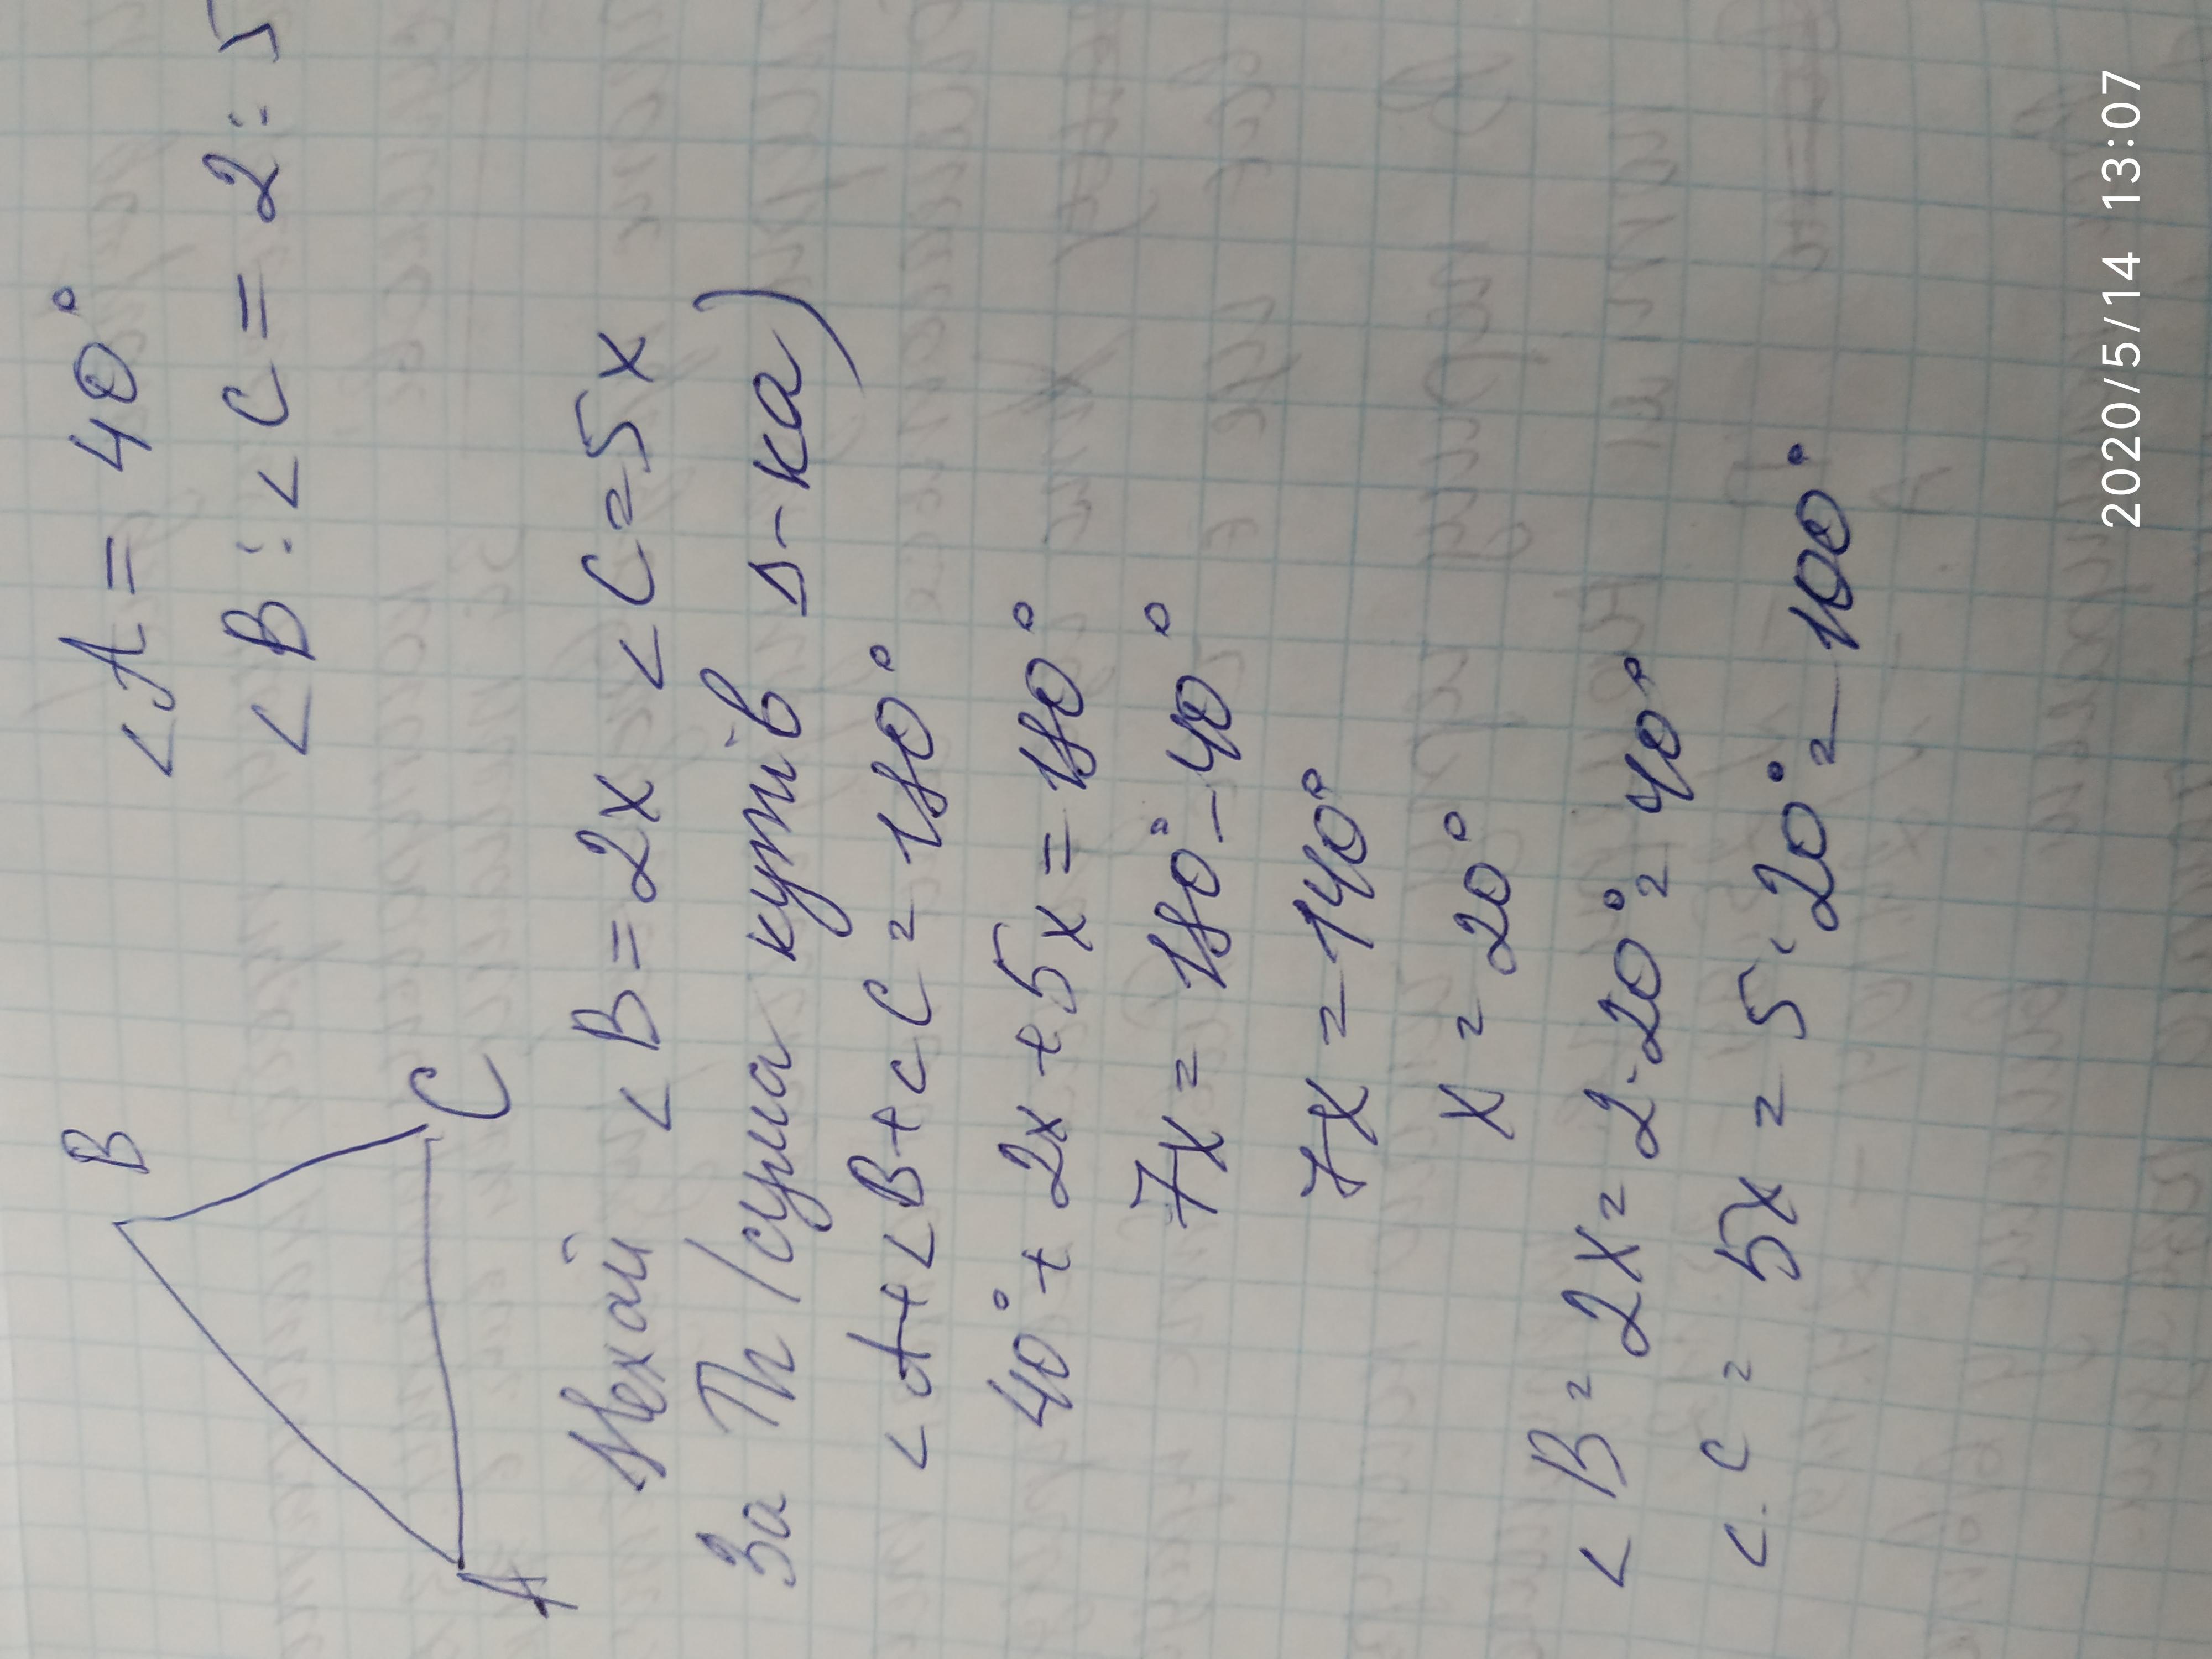 ∠A = 40°
∠B : ∠C = 2 : 5
B
A
C
Нехай ∠B = 2x ∠C = 5x
За Th (сума кутів Δ-ка)
∠A + ∠B + ∠C = 180°
40° + 2x + 5x = 180°
7x = 180° - 40°
7x = 140°
x = 20°
∠B = 2x = 2·20° = 40°
∠C = 5x = 5·20° = 100°
2020/5/14 13:07